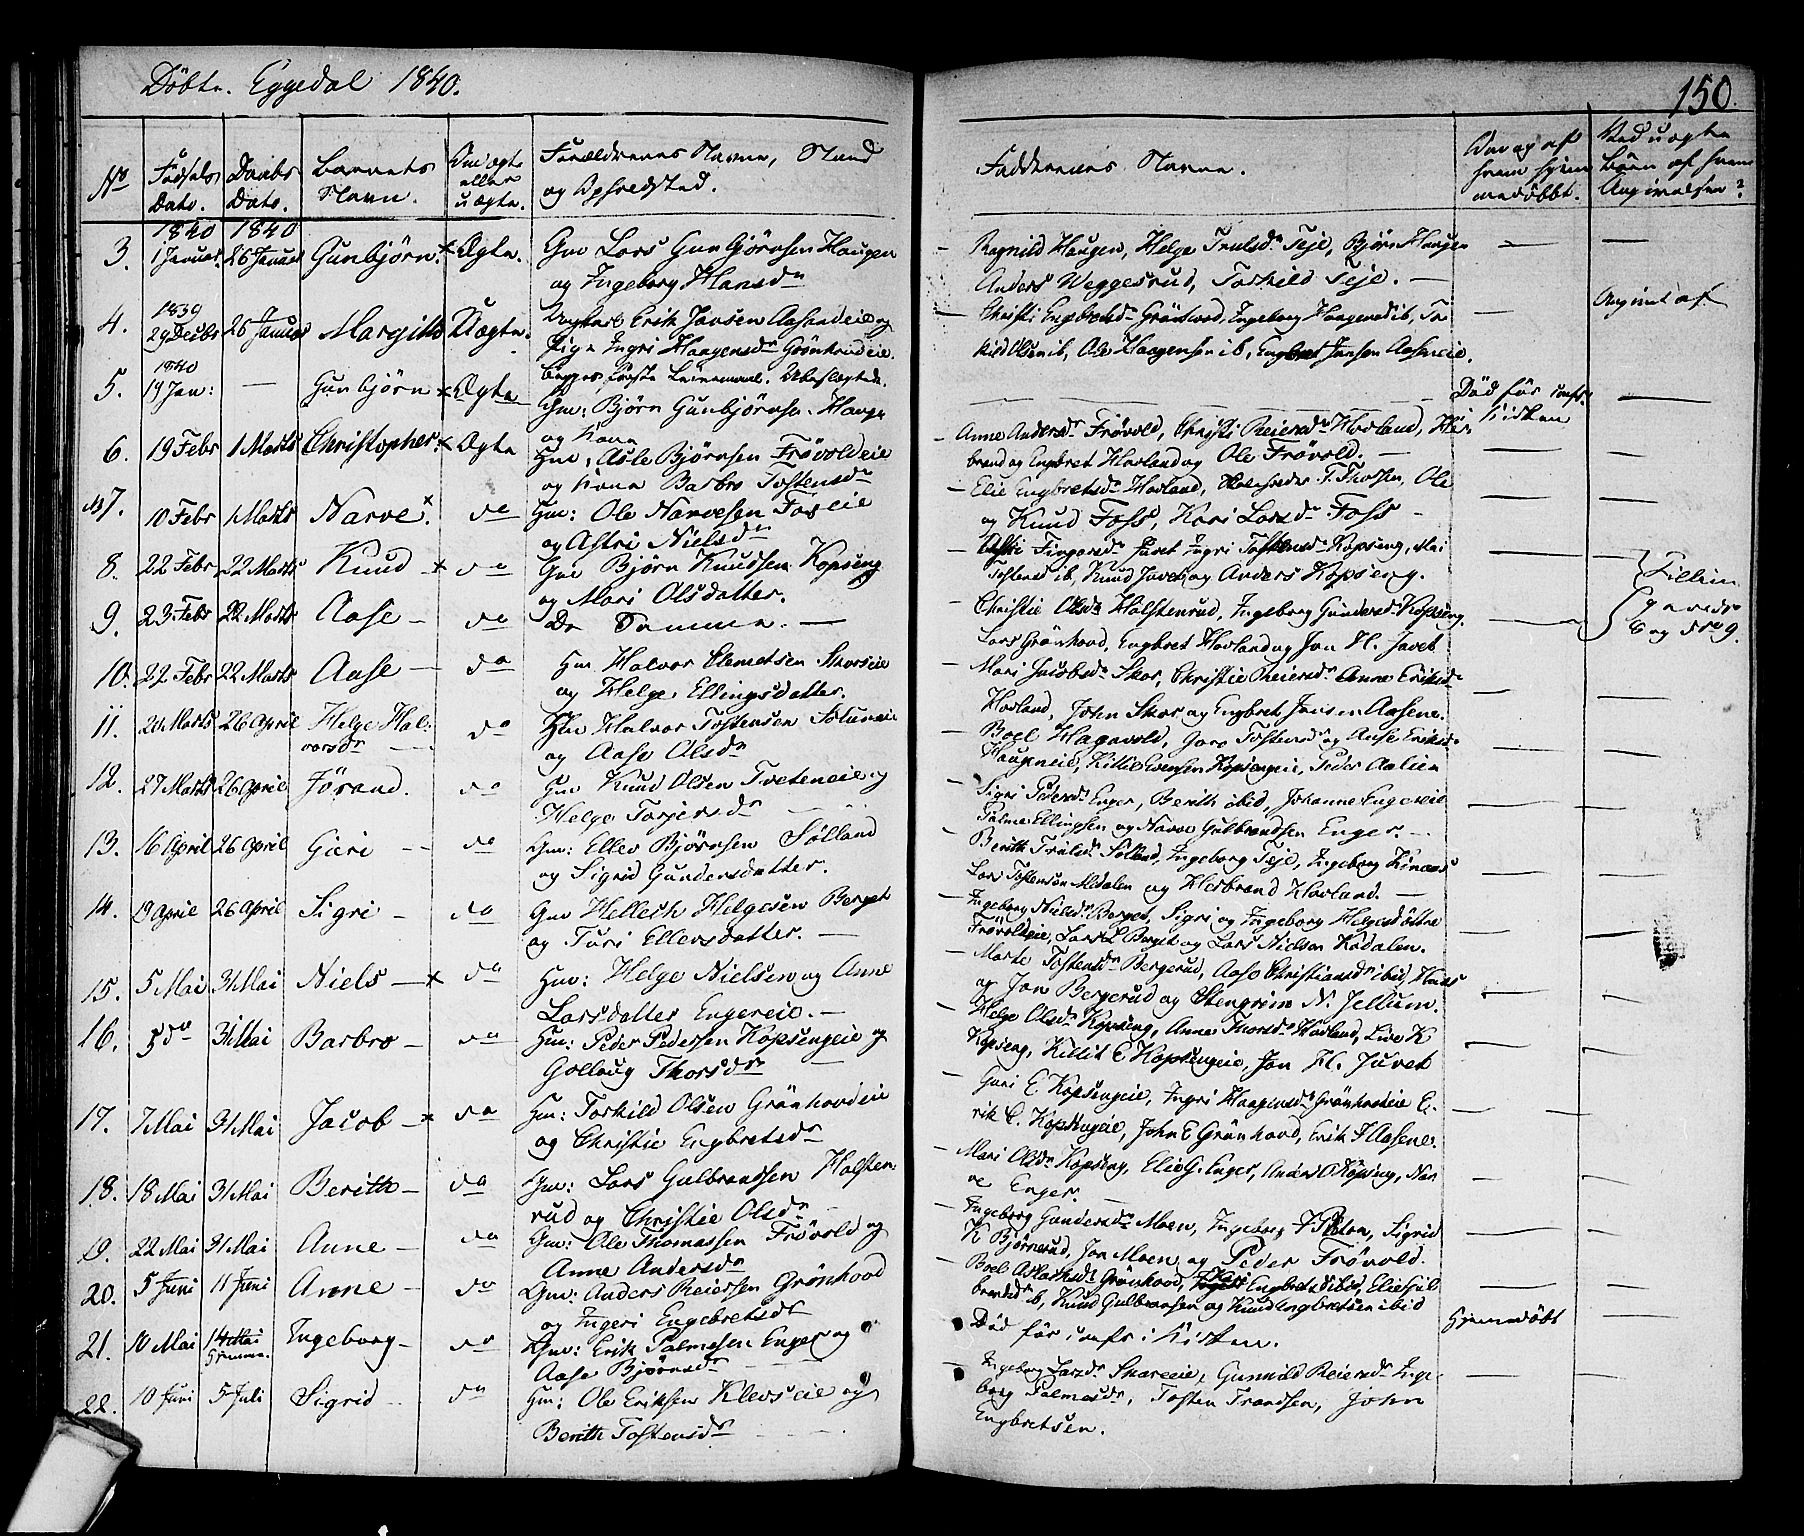 Döbte. Eggedal 1840.
150.
No
Födsels Dato.
Daabs Dato.
Barnets Navn.
Om ægte eller uægte.
Forældrenes Navne, Stand og Opholdsted.
Faddernes Navne.
3. 1840 1 Januar. 1840 26 Januar Gunbjörn. x Ægte. Gm Lars Gunbjörnsen Haugen
og Ingeborg Hansdr
— Ragnild Haugen, Helge Trulsdr Teje, Björn Haugen
Anders Weggesrud, Torkild Teje. —
4. 1839 29 Decbr 26 Januar Margith Uægte. Ungkarl Erik Jonsen Aasaneie og
Pige Ingri Haagensdr Grönhovdeie.
begges förste Leiermaal. Ubeslægtede.
— Christi Engebretsdr Grönhovd, Ingeborg Haagensd ib,
Olsen ib, Ole Haagensen ib, Engbret Jonsen Aasneie.
Angivet af
5. 1840 19 Jan: — Gunbjörn x Ægte Gm: Björn Gunbjörns. Hauge
og Kone
Död för
Kirken
6. 19 Febr 1 Marts Christopher. x Ægte Hm. Asle Björnsen Frövoldeie
og Kone Barbro Tostensdr
— Anne Andersdr Frövold, Christi Reiersdr Hovland, Her-
brand og Engbret Hovland og Ole Frövold. —
7. 10 Febr 1 Marts Narve. x do Hm: Ole Narvesen Foseie
og Astri Nielsdr
— Elie Engbretsdr Hovland, T. Thorsen, Ole
og Knud Foss, Kari Larsdr Foss —
8. 22 Febr 22 Marts Knud — x do Gm Björn Knudsen Kopseng
og Mari Olsdatter.
— Juvet Ingri Tostensdr Kopseng, Mari
Tostensd ib, Knud Juvet og Anders Kopseng.
Tvillinger
8 og 9.
9. 23 Febr 22 Marts Aase — do De Samme. —
— Christie Olsdr Halstenrud, Ingeborg Gundersdr Kopseng.
Lars Grönhovd, Engbret Hovland og Jon H. Juvet
10. 22 Febr 22 Marts Aase — do Hm Halvor Clemetsen Skorseie
og Helge Ellingsdatter.
— Mari Jacobsdr Skor, Christie Reiersdr Anne Eriksdr
Hovland, John Skor og Engbret Jonsen Aasene.
11. 20 Marts 26 April Helge Hal-
vorsdr do Hm Halvor Tostensen
og Aase Olsdr
— Boel Hagavold, Goro Tostensdr og Aase Eriksdr
Haugeneie, Killie Evensen Kopsengeie, Peder Aalien
12. 27 Marts 26 April Jörand. do Hm Knud Olsen Tveteneie og
Helge Torjersdr
— Sigri Pedersdr Enger, Berith ibid, Johanne Engereie
Palme Ellingsen og Narve Gulbrandsen Enger. —
13. 16 April 26 April Guri — do Gm: Ellev Björnsen Sölland
og Sigrid Gundersdatter.
— Berith Trulsdr Sölland, Ingeborg Teje, Ingeborg
Lars Tostensen Medalen og Herbrand Hovland. —
14. 19 April 26 April Sigri — do Gm Hellech Helgesen Berget
og Turi Ellevsdatter. —
— Ingeborg Nielsdr Berget, Sigri og Ingeborg Helgesdöttre
Frövoldeie, Lars L Berget og Lars Nielsen Kodalen.
15. 5 Mai 31 Mai Niels — x do Hm: Helge Nielsen og Anne
Larsdatter Engereie. —
— Marte Tostensdr Bergerud, Aase Christiansdr ibid,
og Jon Bergerud og Stengrim N. Jellum.
16. 5 do 31 Mai Barbro — do Hm: Peder Pedersen Kopsengeie og
Gollaug Thorsdr
— Helge Olsdr Kopseng, Anne Thorsdr Hovland, Live K
Kopseng, Killik E Kopsengeie, Jon H. Juvet
17. 7 Mai 31 Mai Jacob — x do Hm: Torkild Olsen Grönhovdeie
og Christie Engbretsdr
— Guri E Kopsengeie, Ingri Haagensdr Grönhovdeie E-
rik C. Kopsengeie, John E Grönhovd, Erik J Aasene.
18. 18 Mai 31 Mai Berith — do Gm: Lars Gulbrandsen Halsten
rud og Christie Olsdr
— Mari Olsdr Kopseng, Elie G. Enger, Anders O Kopseng, Nar-
ve Enger. —
19. 22 Mai 31 Mai Anne — do Gm: Ole Thomassen Frövold og
Anne Andersdr
— Ingeborg Gundersdr Moen, Ingeborg, Sigrid
K Björnerud, Jon Moen og Peder Frövold.
20. 5 Juni 11 Juni Anne — do Gm: Anders Reiersen Grönhovd
og Ingeri Engebretsdr
— Boel Aslaksdr Grönhovd, Engbretsd ibid, Elie Gul-
brandsd ib, Knud Gulbransen og Knud Engbretsen ibid
21. 10 Mai 14 Mai
hjemme. Ingeborg — do Gm: Erik Palmesen Enger og
Aase Björnsdr
Död för i Kirken.
Hjemmedöbt
22. 10 Juni 5 Juli Sigrid — do Hm: Ole Eriksen Klevseie og
Berith Tostensdr
— Ingeborg Larsdr Skareeie, Gunnild Reiersdr Inge-
borg Palmesdr, Tosten Trondsen, John
Engbretsen.